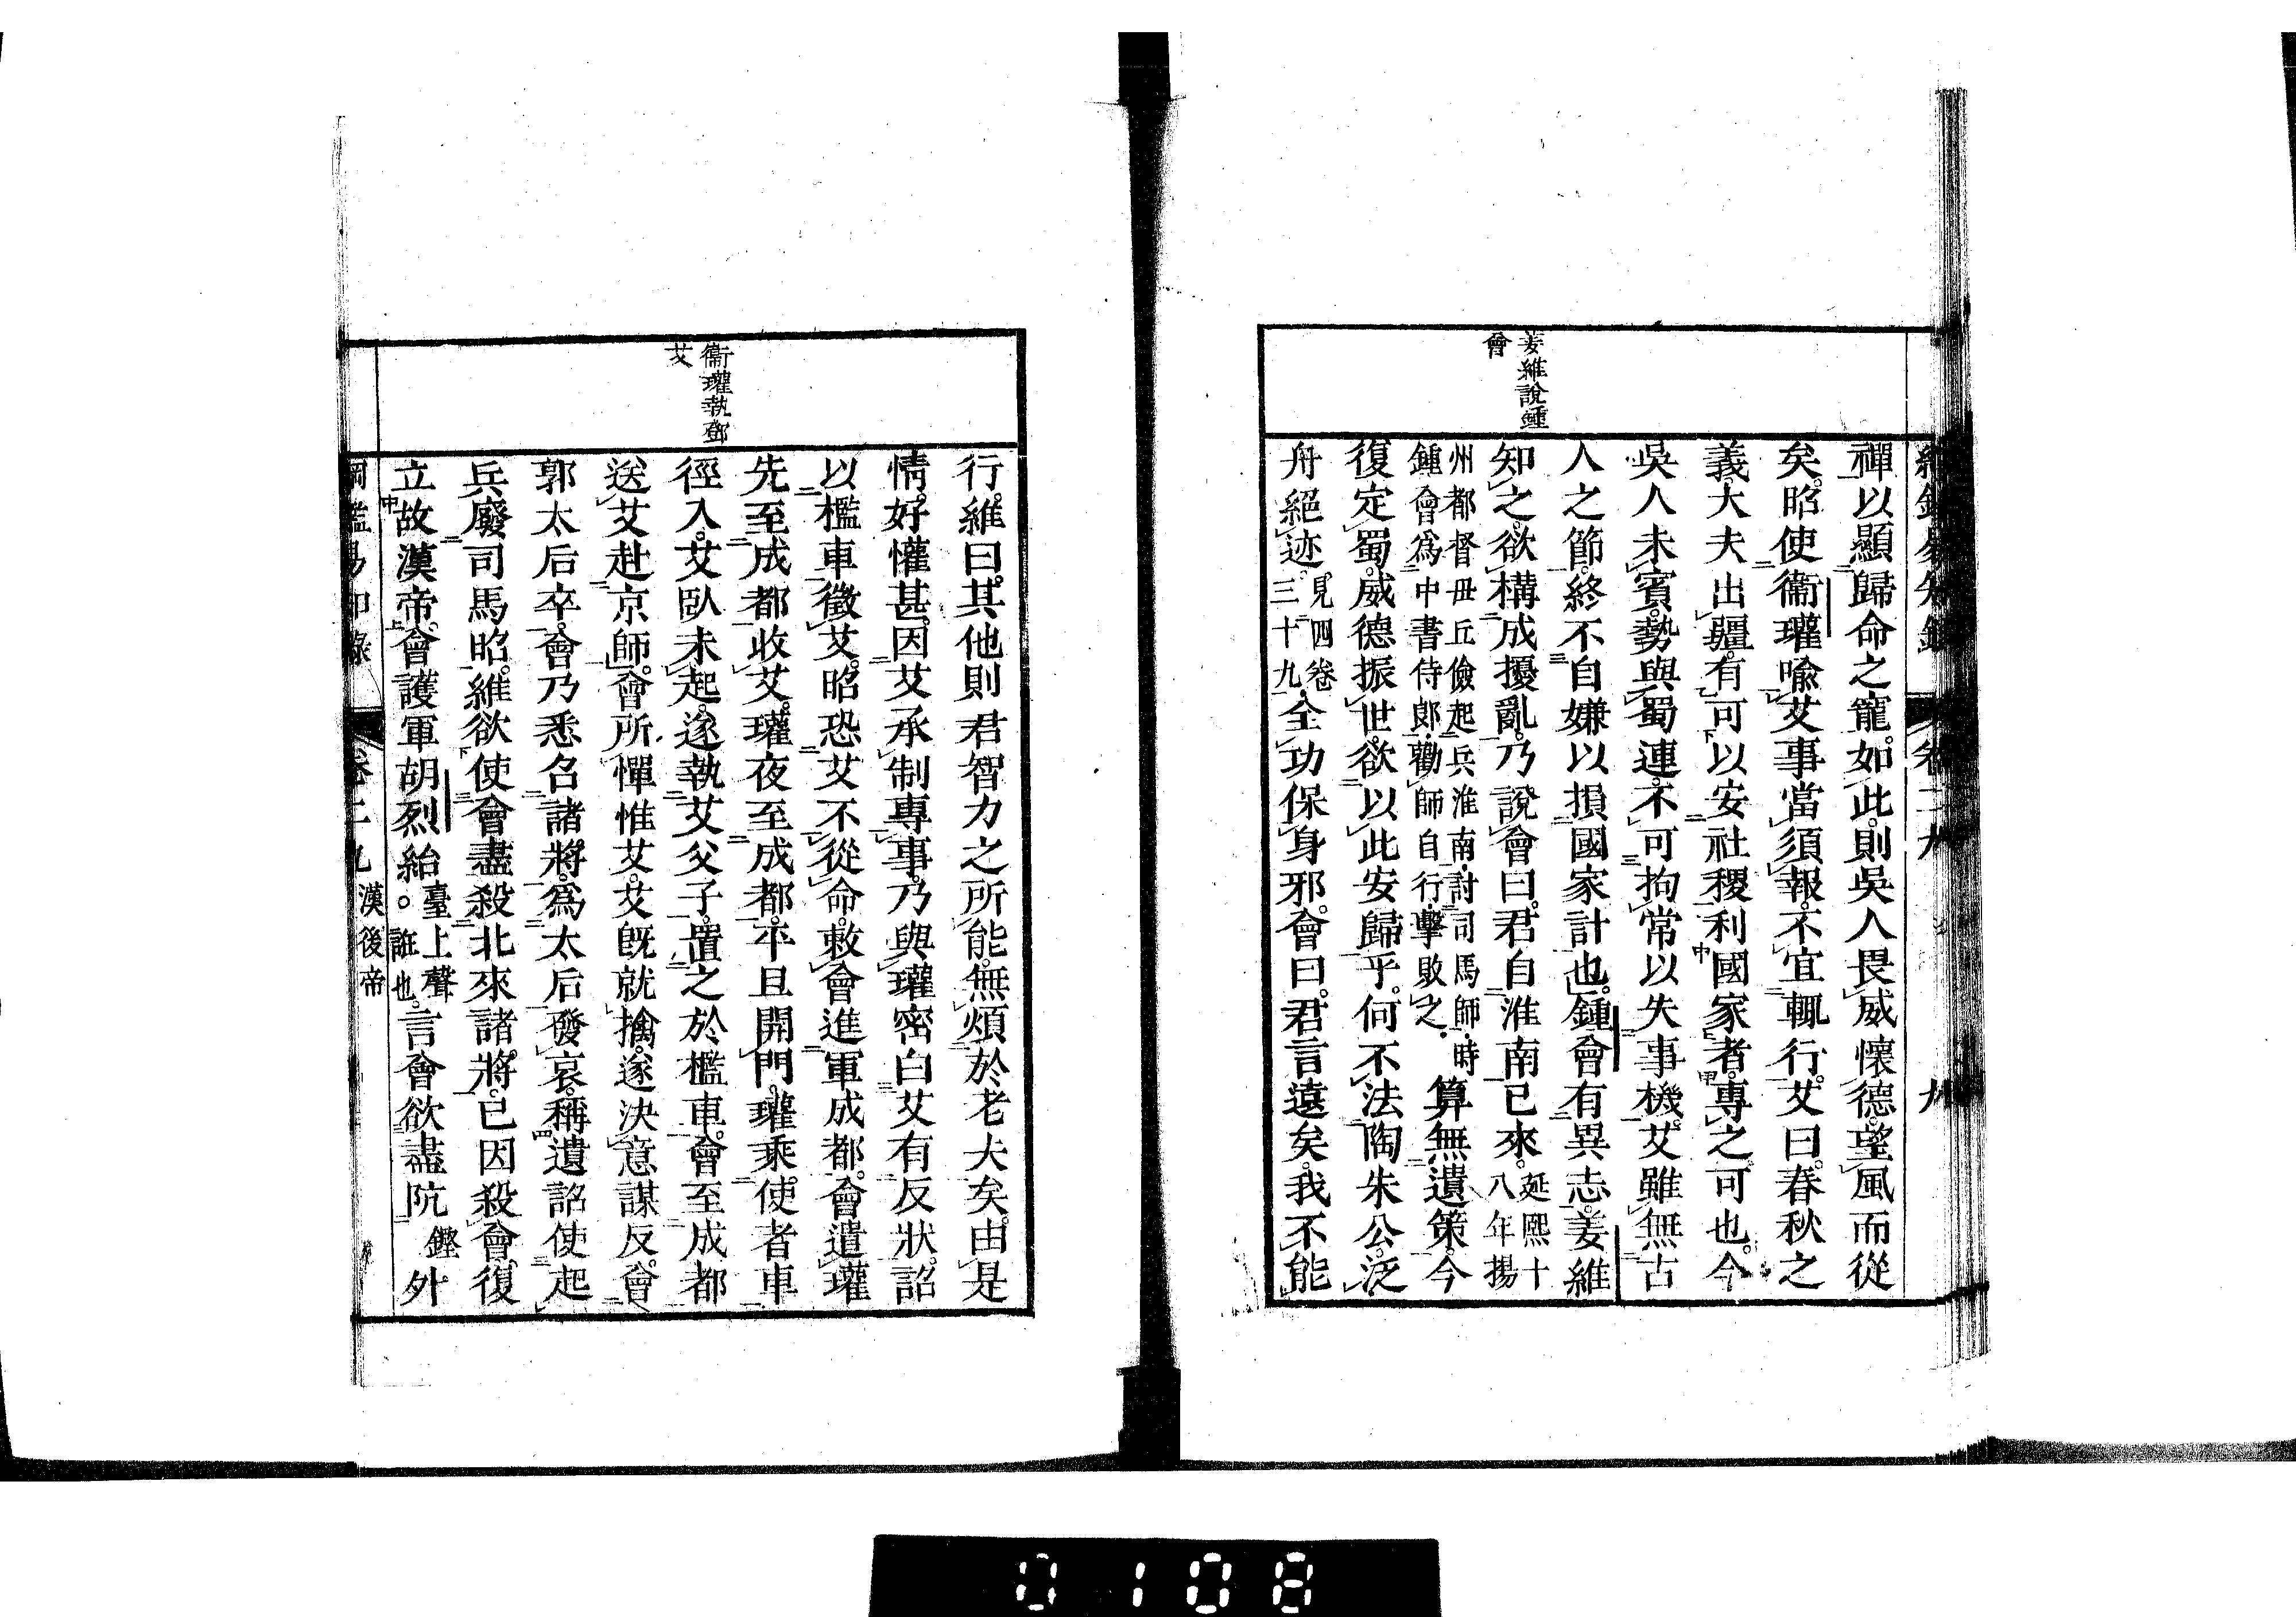 綱鑑易知録 卷二九 九
姜維說鍾
會
禪以顯歸命之寵。如此則吳人畏威懷德。望風而從
矣。昭使衞瓘喻艾事當須報。不宜輒行。艾曰。春秋之
義。大夫出疆。有可以安社稷利國家者。專之可也。今
吳人未賓。勢與蜀連。不可拘常以失事機。艾雖無古
人之節。終不自嫌以損國家計也。鍾會有異志。姜維
知之。欲構成擾亂。乃說會曰。君自淮南已來。延熙十八年揚
州都督毌丘儉起兵淮南。討司馬師。時鍾會爲中書侍郎。勸師自行。擊敗之。算無遺策。今
復定蜀。威德振世。欲以此安歸乎。何不法陶朱公。泛
舟絕迹。見四卷三十九。全功保身邪。會曰。君言遠矣。我不能
衞瓘執鄧
艾
行。維曰。其他則君智力之所能。無煩於老夫矣。由是
情好懽甚。因艾承制專事。乃與瓘密白艾有反狀。詔
以檻車徵艾。昭恐艾不從命。敕會進軍成都。會遣瓘
先至成都收艾。瓘夜至成都。平旦開門。瓘乘使者車
徑入。艾臥未起。遂執艾父子。置之於檻車。會至成都
送艾赴京師。會所憚惟艾。艾旣就擒。遂決意謀反。會
郭太后卒。會乃悉召諸將。爲太后發哀。稱遺詔使起
兵廢司馬昭。維欲使會盡殺北來諸將。已因殺會。復
立故漢帝。會護軍胡烈紿。臺上聲。誑也。言會欲盡阬鏗外
綱鑑易知錄 卷二九 漢後帝